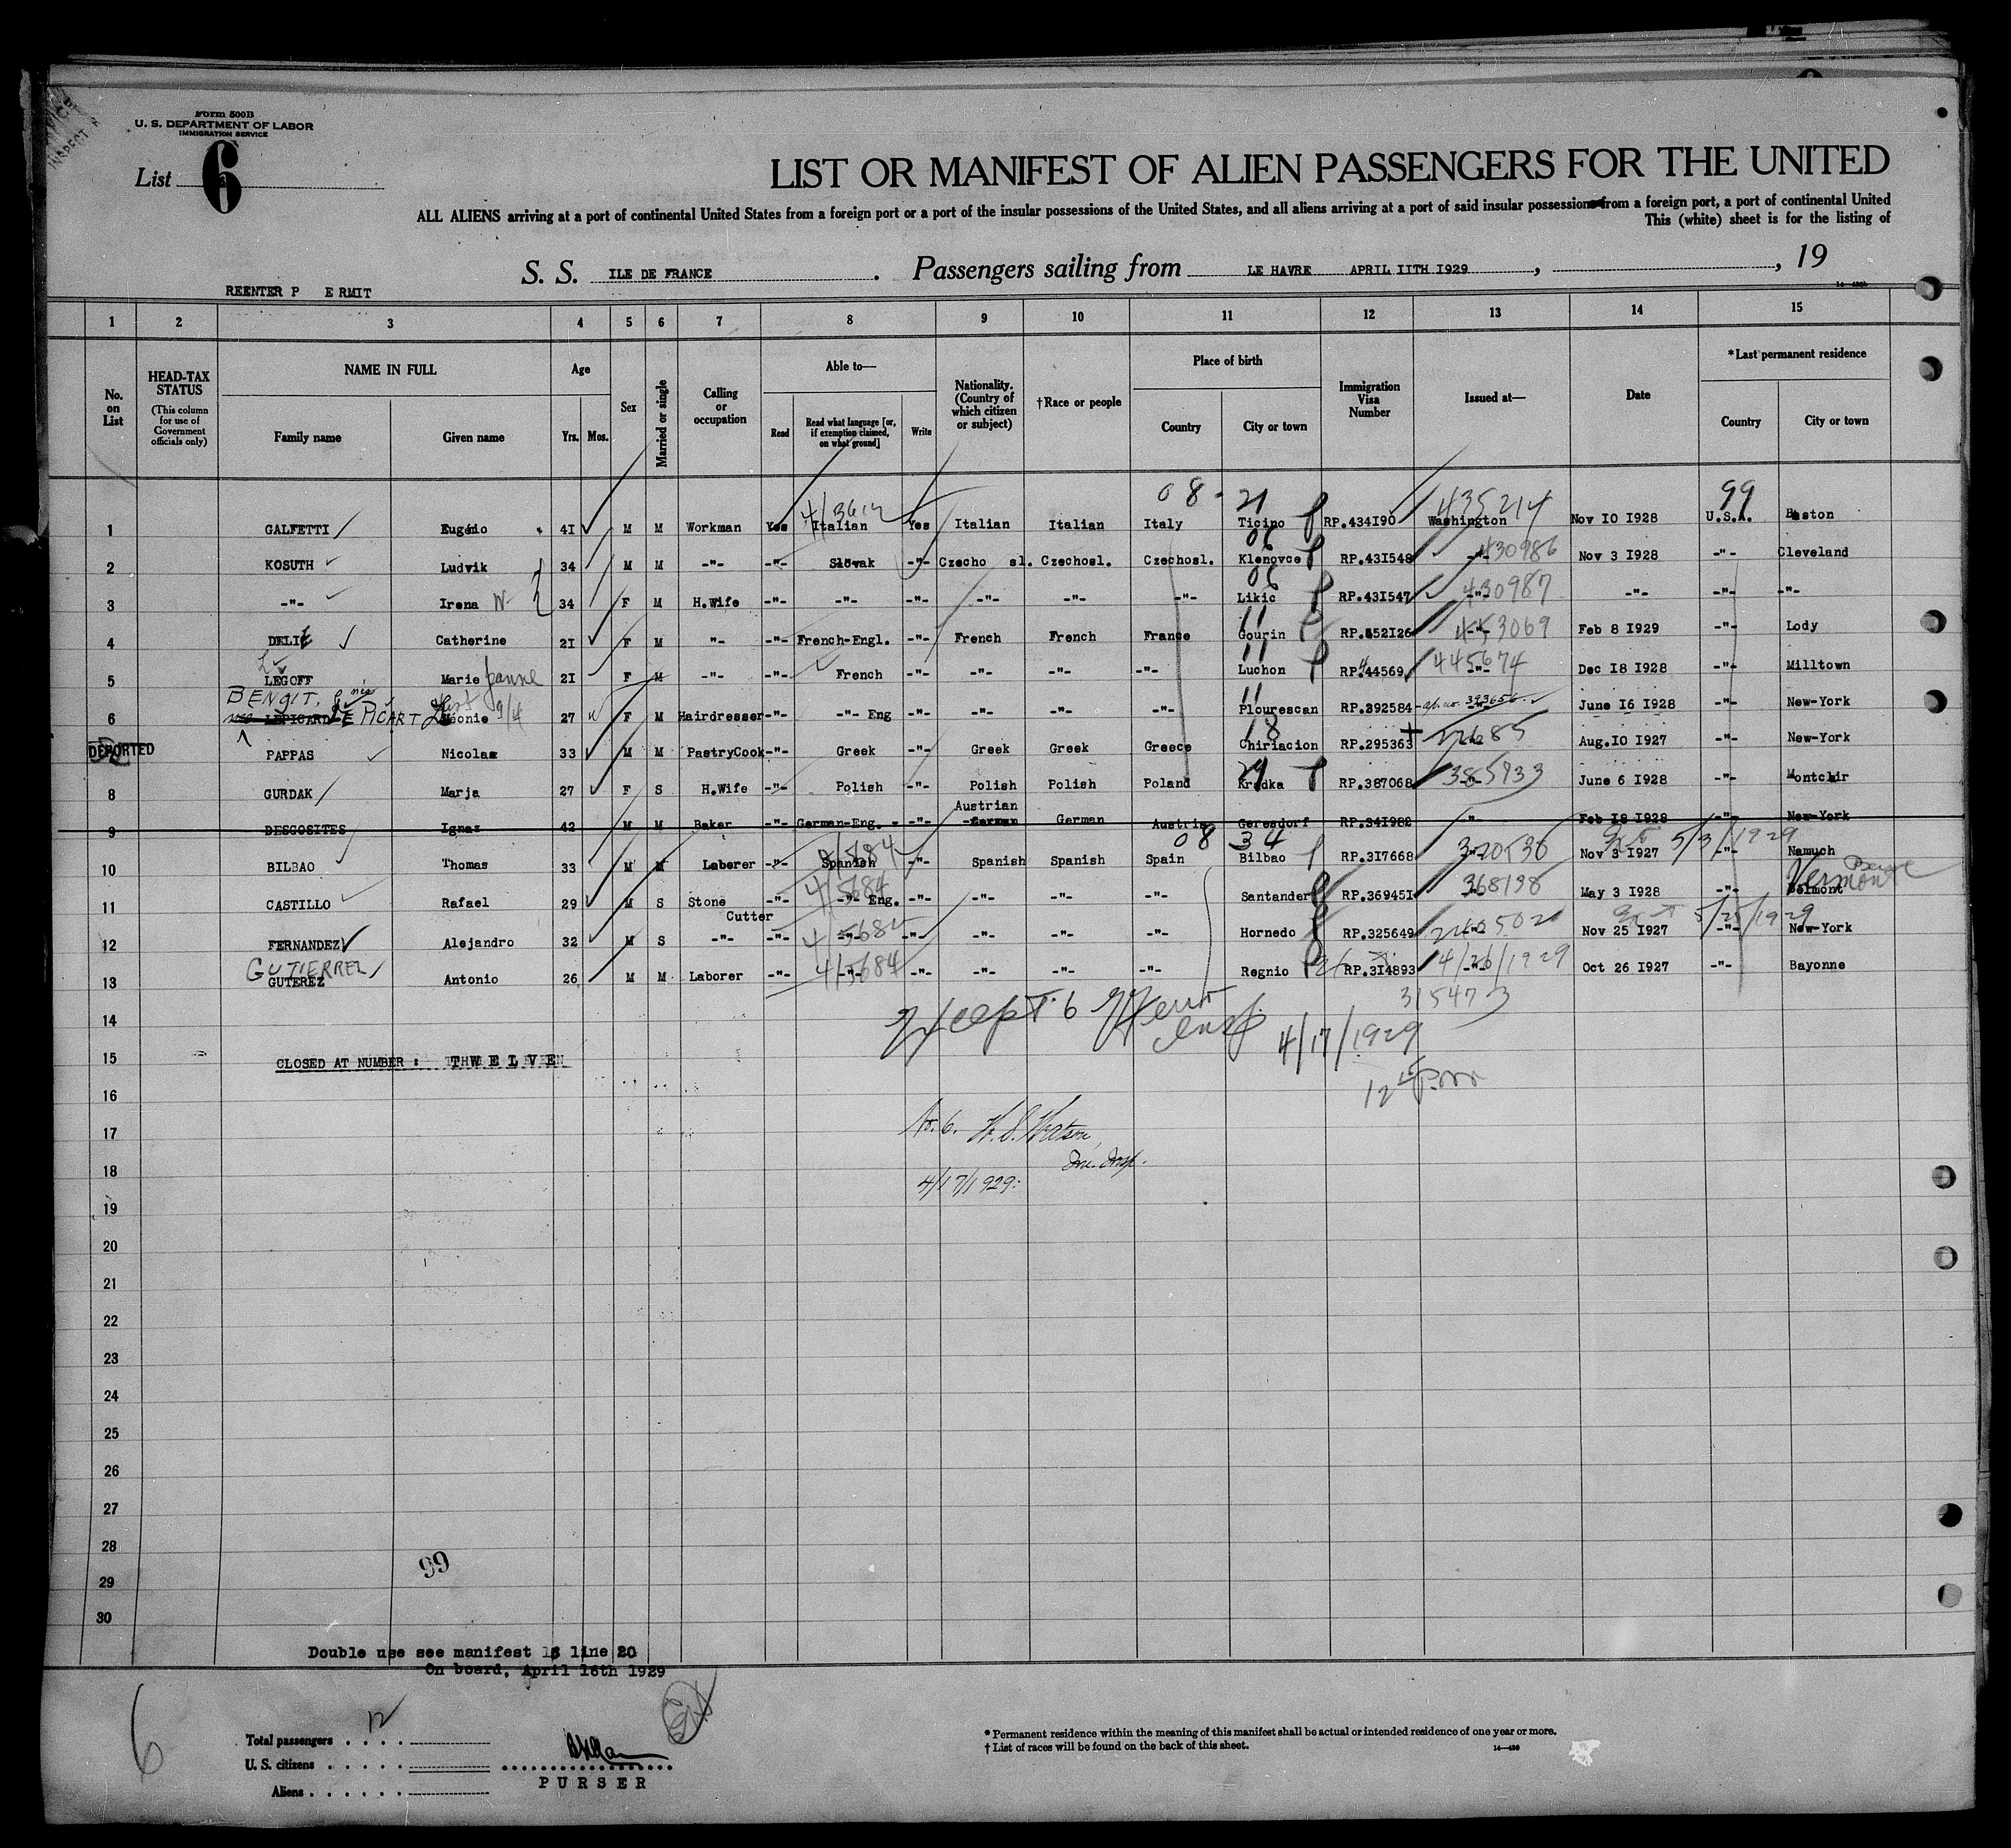 Form 500B
U. S. DEPARTMENT OF LABOR
IMMIGRATION SERVICE
List 6
LIST OR MANIFEST OF ALIEN PASSENGERS FOR THE UNITED
ALL ALIENS arriving at a port of continental United States from a foreign port or a port of the insular possessions of the United States, and all aliens arriving at a port of said insular possessions from a foreign port, a port of continental United
This (white) sheet is for the listing of
S. S. ILE DE FRANCE . Passengers sailing from LE HAVRE APRIL IITH I929 , , 19
REENTER P E RMIT
1 2 3 4 5 6 7 8 9 10 11 12 13 14 15
No. on List
HEAD-TAX STATUS (This column for use of Government officials only)
NAME IN FULL Family name Given name
Age Yrs. Mos.
Sex
Married or single
Calling or occupation
Able to— Read Read what language [or, if exemption claimed, on what ground] Write
Nationality. (Country of which citizen or subject)
†Race or people
Place of birth Country City or town
Immigration Visa Number
Issued at—
Date
*Last permanent residence Country City or town
08 - 21 435214 99
1 GALFETTI Eugénio 4I M M Workman Yes Italian Yes Italian Italian Italy Ticino RP.434I90 Washington Nov IO I928 U.S.A. Boston
06
2 KOSUTH Ludvik 34 M M -"- -"- Slovak -"- Czecho sl. Czechosl. Czechosl. Klenovce RP.43I548 -"- 430986 Nov 3 I928 -"- Cleveland
06
3 -"- Irena W 34 F M H.Wife -"- -"- -"- -"- -"- -"- Likic RP.43I547 -"- 430987 -"- -"- -"-
11
4 Catherine 2I F M "- -"- French-Engl. -"- French French France Gourin -"- 453069 Feb 8 I929 -"- Lody
11
5 LEGOFF Marie Jeanne 2I F M -"- -"- French -"- -"- -"- -"- Luchon RP.444569 -"- 445674 Dec I8 I928 -"- Milltown
BENOIT, 11
6 LEPICARD LE PICART Léonie 9/4 27 F M Hairdresser -"- -"- Eng -"- -"- -"- -"- Plourescan RP.392584 393656 June I6 I928 -"- New-York
18
DEPORTED PAPPAS Nicolas 33 M M PastryCook -"- Greek -"- Greek Greek Greece Chiriacion RP.295363 Aug.IO I927 -"- New-York
29
8 GURDAK Marja 27 F S H.Wife -"- Polish -"- Polish Polish Poland RP.387068 -"- 385933 June 6 I928 -"- Montclair
Austrian
9 DESGOSITES Ignaz 42 M M Baker -"- German-Eng. -"- German German Austria Geresdorf RP.34I982 " Feb I8 I928 New-York
08 34 5/3/1929
10 BILBAO Thomas 33 M M Laborer -"- Spanish -"- Spanish Spanish Spain Bilbao RP.3I7668 320530 Nov 3 I927 -"- Namuch
4/5684 Vermont
11 CASTILLO Rafael 29 M S Stone Cutter -"- -"- Eng. -"- -"- -"- -"- Santander RP.36945I 368198 May 3 I928 -"- Belmont
4/5684 5/25/1929
12 FERNANDEZ Alejandro 32 M S -"- -"- -"- -"- -"- -"- -"- Hornedo RP.325649 -"- Nov 25 I927 -"- New-York
GUTIERREZ 4/5684
13 GUTEREZ Antonio 26 M M Laborer -"- -"- -"- -"- -"- -"- Regnio RP.3I4893 -"- 4/26/1929 Oct 26 I927 -"- Bayonne
315473
14 Except 6 4/17/1929
15 CLOSED AT NUMBER : THWELVEN
16
12 P.M
17 No. 6. W. S. Watson,
18 Imm. Insp.
4/17/1929:
19
20
21
22
23
24
25
26
27
28
99
29
30
Double use see manifest 13 line 20
On board, April 16th 1929
6
Total passengers . . . . 12
U. S. citizens . . . . .
Aliens . . . . . .
PURSER
* Permanent residence within the meaning of this manifest shall be actual or intended residence of one year or more.
† List of races will be found on the back of this sheet.